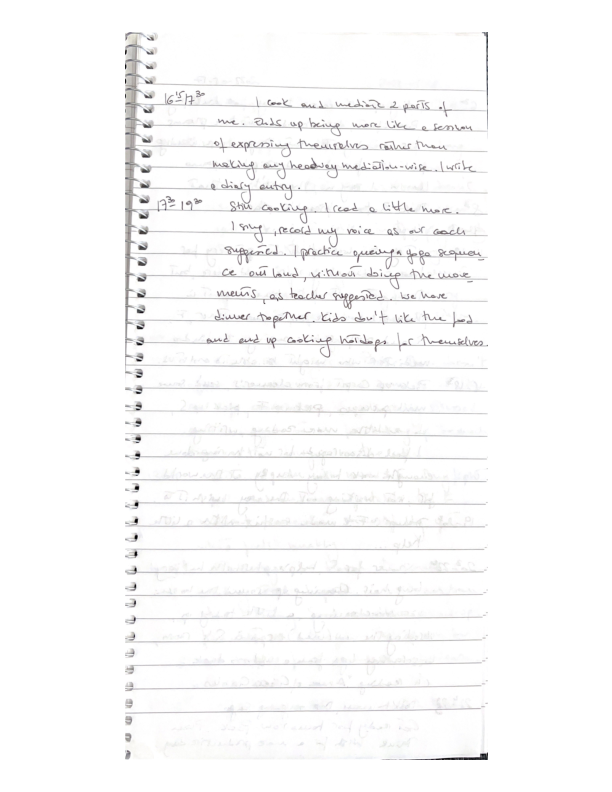 16¹⁵-17³⁰ I cook and mediate 2 parts of
me. Ends up being more like a session
of expressing themselves rather than
making any headway mediation-wise. I write
a diary entry.
17³⁰-19³⁰ Still cooking. I read a little more.
I sing, record my voice as our coach
suggested. I practice queing a yoga sequen-
ce out loud, without doing the move-
ments, as teacher suggested. We have
dinner together. Kids don't like the food
and end up cooking hotdogs for themselves.